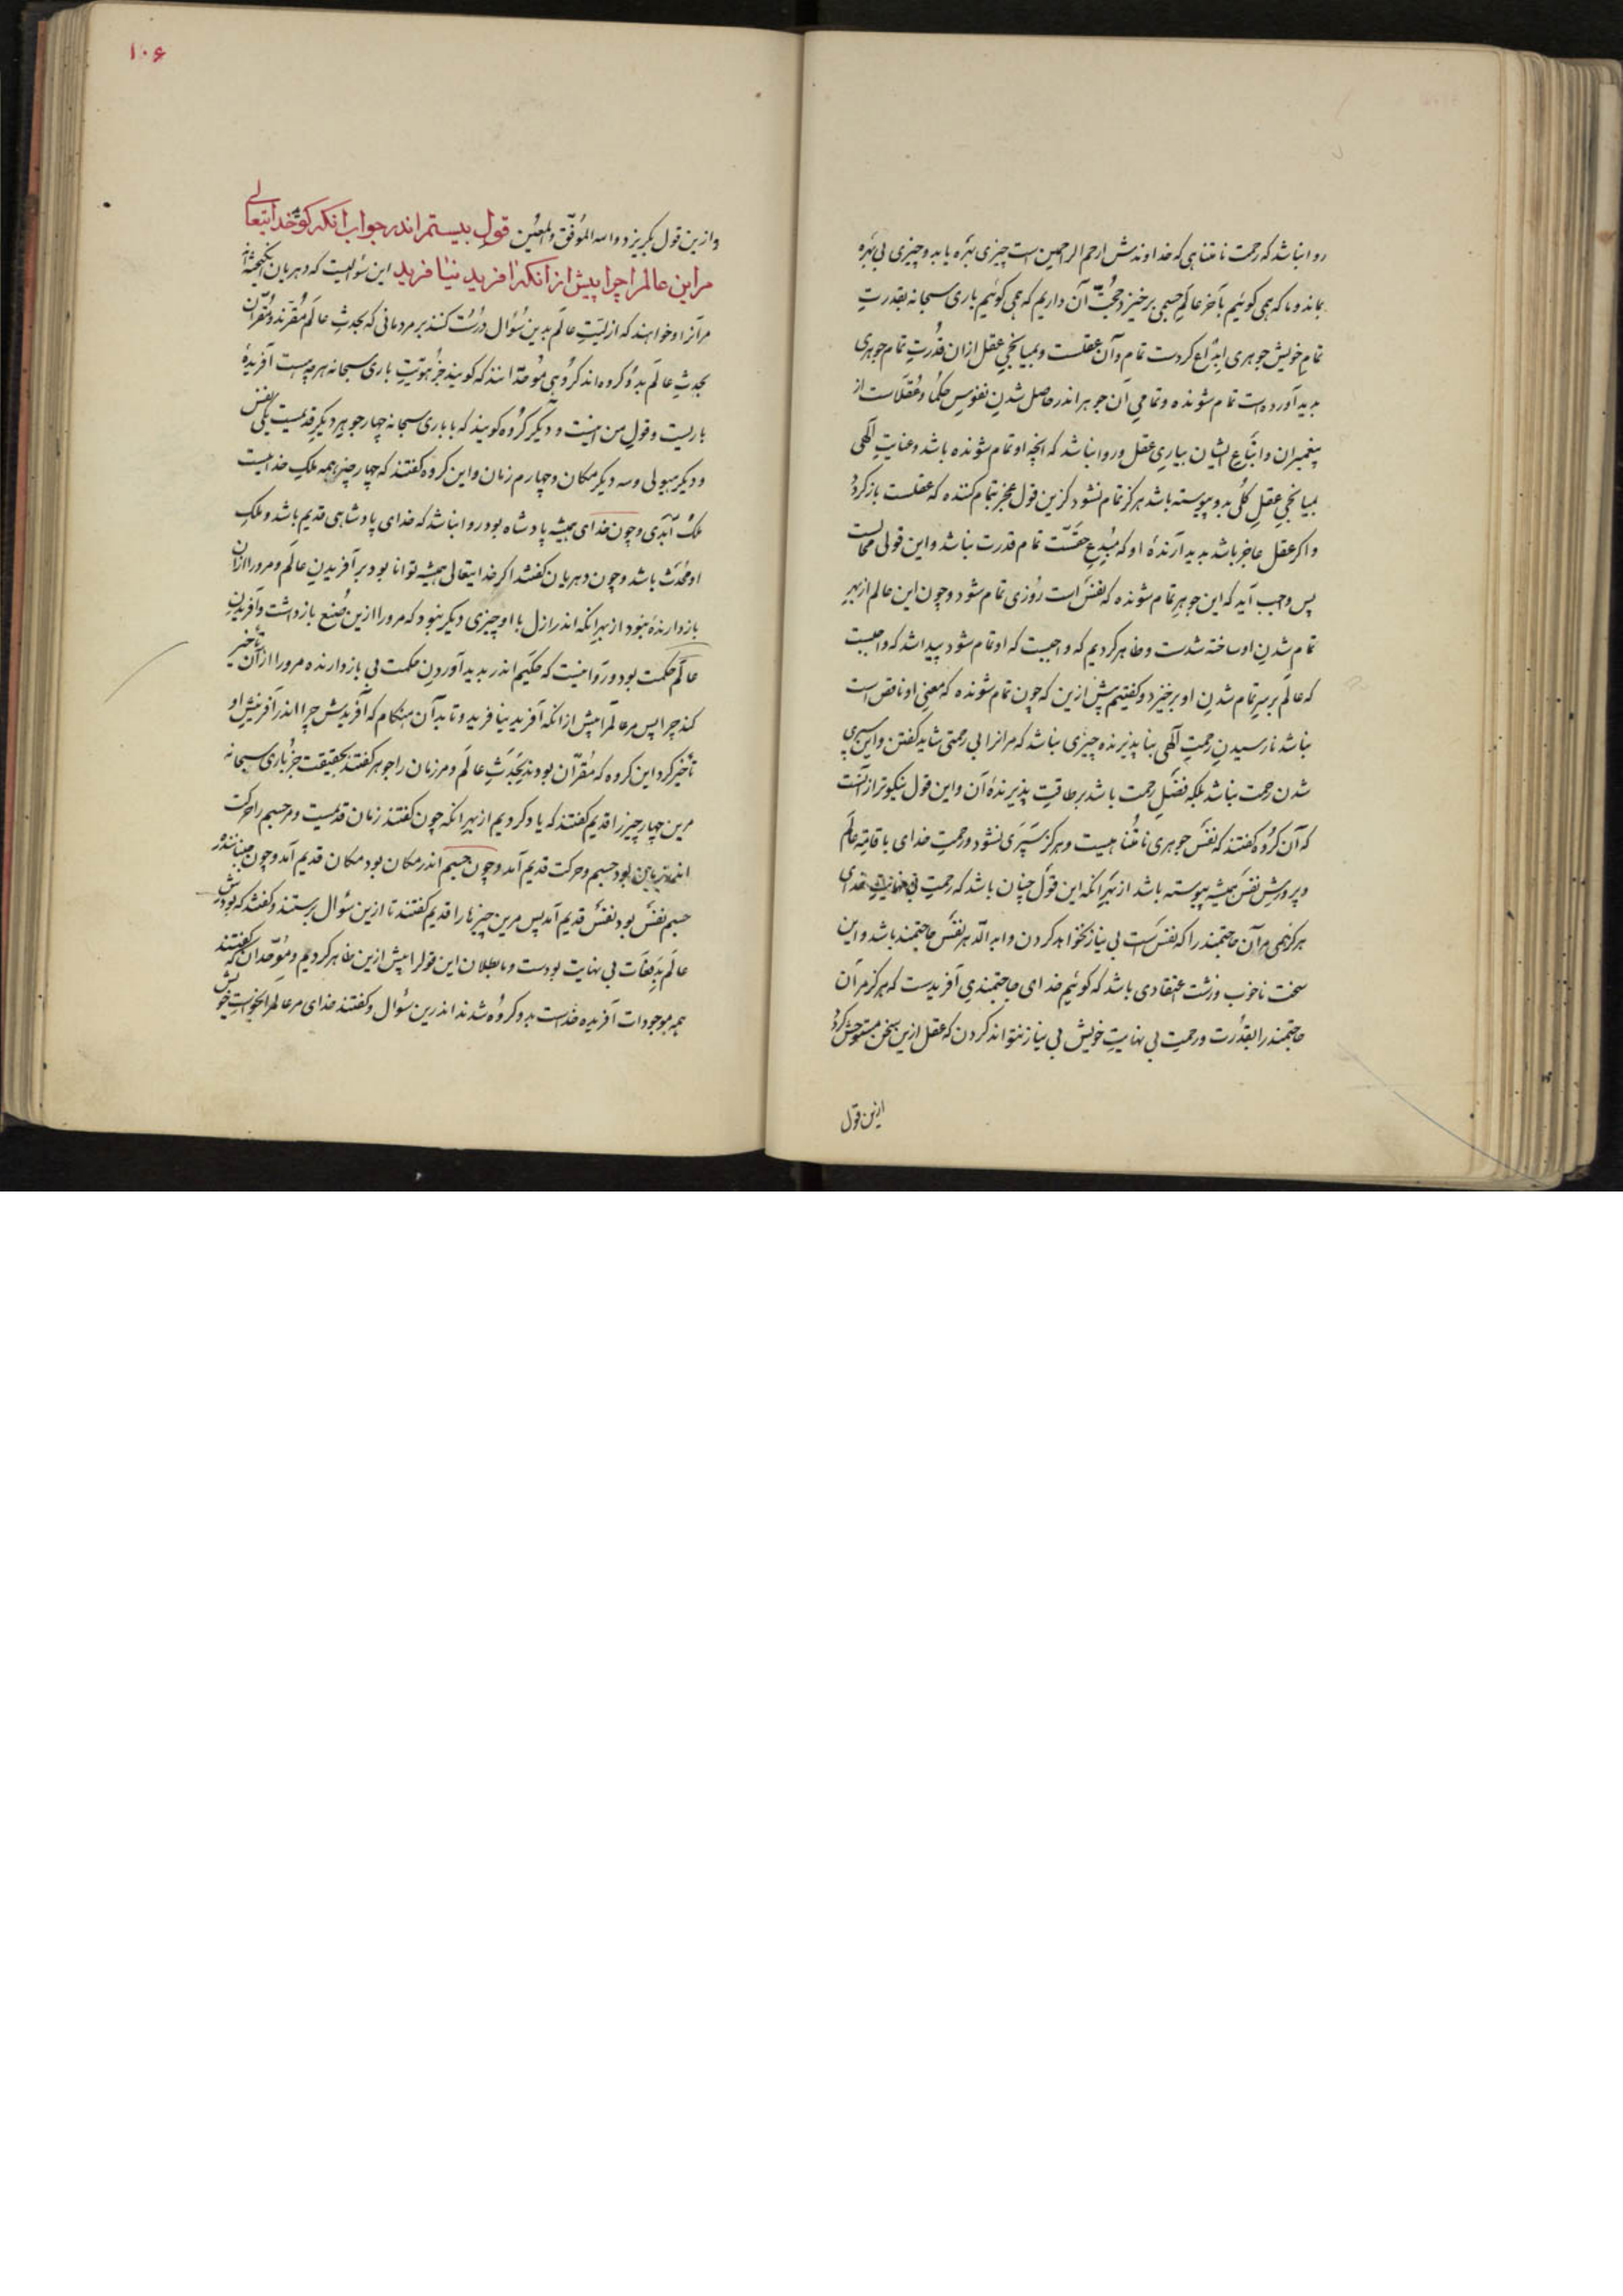 روا نباشد که رحمت نامتناهی که خداوندش ارحم الراحمین است چیزی بهره یابد و چیزی بی بهره
بماند و ما که همی کوئیم بآخر عالم جسمی برخیزد حجت آن داریم که همی کوئیم باری سبحانه بقدرت
تمام خویش جوهری ابداع کردست تمام و آن عقلست و بمیانجی عقل ازان قدرت تمام جوهری
پدید آورده است تمام شونده و تمامی آن جوهر اندر حاصل شدن نفوس حکما و عقلاست از
پیغمبران و اتباع ایشان بیاری عقل و روا نباشد که آنچه او تمام شونده باشد و عنایت الهی
بمیانجی عقل کلی بدو پیوسته باشد هرکز تمام نشود کزین قول عجز بتمام کننده که عقلست بازکردد
و اکر عقل عاجز باشد پدید آرندهٔ او که مبدع حقست تمام قدرت نباشد و این قولی محالست
پس واجب آید که این جوهر تمام شونده که نفس است روزی تمام شود و چون این عالم از بهر
تمام شدن او ساخته شدست و ظاهر کردیم که واجبست که او تمام شود پیدا شد که واجبست
که عالم بر سر تمام شدن او برخیزد و کفتیم پیش ازین که چون تمام شونده که معنی او ناقص است
نباشد نارسیدن رحمت الهی بنا پذیرنده چیزی نباشد که مرانرا بی رحمتی شاید کفتن و این سپری
شدن رحمت نباشد بلکه فضل رحمت باشد بر طاقت پذیرندهٔ آن و این قول نیکوتر از آنست
که آن کروه کفتند که نفس جوهری نامتناهیست و هرکز سپری نشود و رحمت خدای باقامهٔ عالم
و پرورش نفس همیشه پیوسته باشد از بهر انکه این قول چنان باشد که رحمت بی نهایت خدای
هرکز همی مرآن حاجتمند را که نفس است بی نیاز نخواهد کردن و ابد الدهر نفس حاجتمند باشد و این
سخت ناخوب و زشت اعتقادی باشد که کوئیم خدای حاجتمندی آفریدست که هرکز مرآن
حاجتمند را بقدرت و رحمت بی نهایت خویش بی نیاز نتواند کردن که عقل ازین سخن مستوحش کردد
ازین قول
۱۰۶
و ازین قول بکریزد و الله الموفق و المعین قول بیستم اندر جواب انکه کوید خدایتعالی
مر این عالم را چرا پیش از انکه آفرید نیافرید این سؤالیست که دهریان انکیخته اند
مرآنرا و خواهند که ازلیت عالم بدین سؤال درست کنند بر مردمانی که بحدث عالم مقرند و مقران
بحدث عالم بدو کروه اند کروهی موحدانند که کویند جز هویت باری سبحانه هرچه هست آفریدهٔ
باریست و قول من اینست و دیکر کروه کویند که با باری سبحانه چهار جوهر دیکر قدیمست یکی نفس
و دیکر هیولی و سه دیکر مکان و چهارم زمان و این کروه کفتند که چهار چیز همه ملک خدایست
ملک ابدی و چون خدای همیشه پادشاه بود روا نباشد که خدای پادشاهی قدیم باشد و ملک
او محدث باشد و چون دهریان کفتند اکر خدایتعالی همیشه توانا بود بر آفریدن عالم و مر ورا ازان
بازدارندهٔ نبود از بهر انکه اندر ازل با او چیزی دیکر نبود که مر ورا ازین صنع بازداشت و آفریدن
عالم حکمت بود و روا نیست که حکیم اندر پدید آوردن حکمت بی بازدارنده مر ورا ازان تأخیر
کند چرا پس مر عالم را پیش از انکه آفرید نیافرید و تا بدآن هنکام که آفریدش چرا اندر آفرینش او
تأخیر کرد این کروه که مقران بودند بحدث عالم و مر زمان را جوهر کفتند بحقیقت جز باری سبحانه
مرین چهار چیز را قدیم کفتند که یاد کردیم از بهر انکه چون کفتند زمان قدیمست و مر جسم را حرکت
اندر زمان بود جسم و حرکت قدیم آمد و چون جسم اندر مکان بود مکان قدیم آمد و چون
جسم نفس بود نفس قدیم آمد پس مرین چیزها را قدیم کفتند تا ازین سؤال برستند و کفتند که بودش
عالم بدفعات بی نهایت بودست و ما بطلان این قول را پیش ازین ظاهر کردیم و موحدان که کفتند
همه موجودات آفریده خداست بدو کروه شدند اندرین سؤال و کفتند خدای مر عالم را بخواست خویش